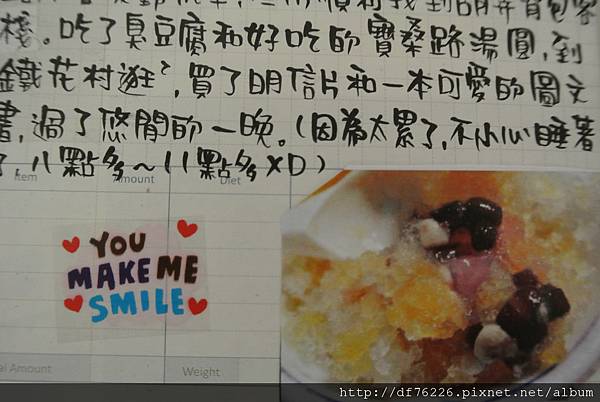 找到明井背包客
棧。吃了臭豆腐和好吃的寶桑路湯圓,到
鐵花村逛逛,買了明信片和一本可愛的圖文
書,過了悠閒的一晚。(因為太累了,不小心睡著
了,八點多~11點多XD)
Item Amount Diet
YOU
MAKE ME
SMILE
al Amount Weight
http://df76226.pixnet.net/album